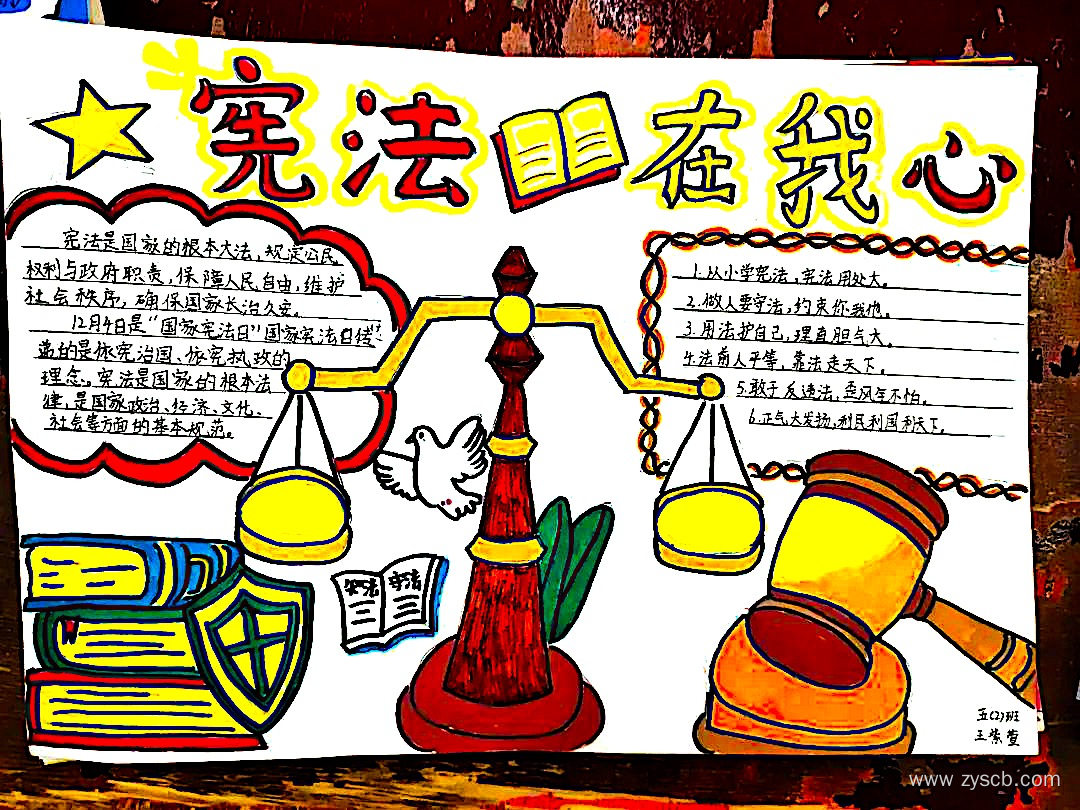 宪法在我心
宪法是国家的根本大法,规定公民
权利与政府职责,保障人民自由,维护
社会秩序,确保国家长治久安。
12月4日是“国家宪法日”国家宪法日传
递的是依宪治国、依宪执政的
理念。宪法是国家的根本法
律,是国家政治、经济、文化、
社会等方面的基本规范。
1.从小学宪法,宪法用处大。
2.做人要守法,约束你我他。
3.用法护自己,理直胆气大。
4.法前人平等,靠法走天下。
5.敢于反违法,歪风年不怕。
6.正气大发扬,利民利国利天下。
宪法 宪法
五(2)班
王紫萱
www.zyscb.com